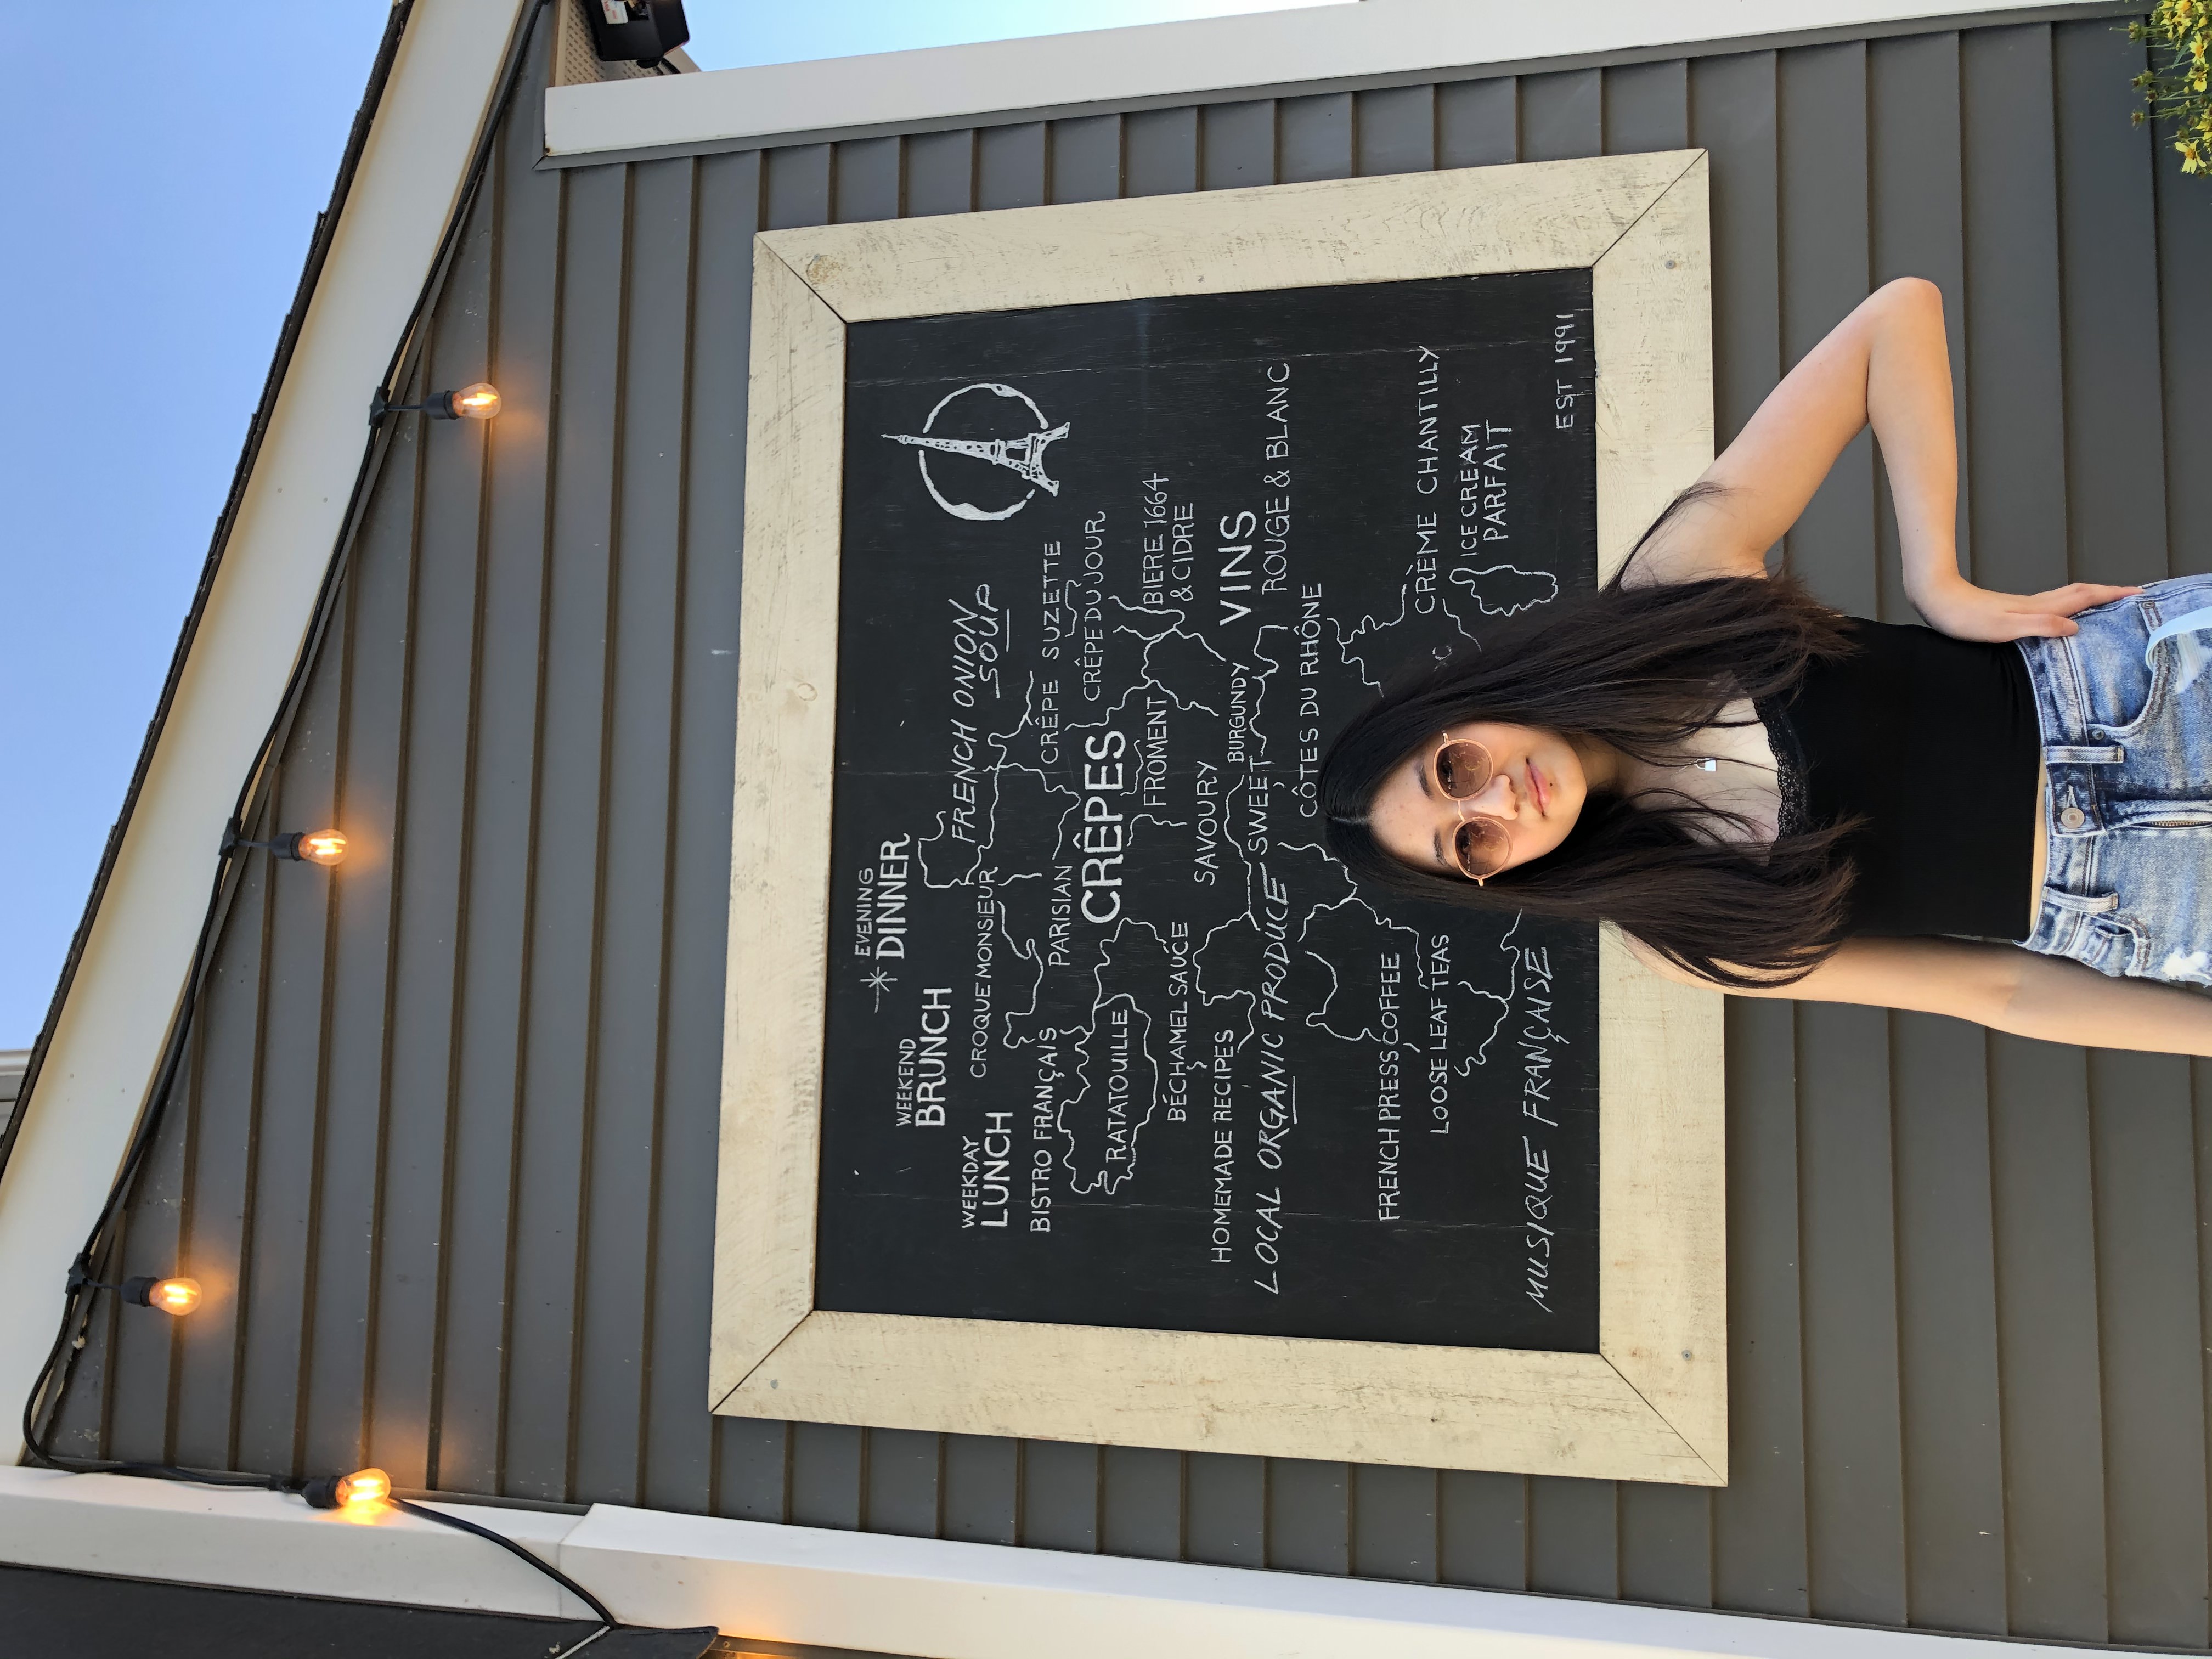 EVENING
DINNER
WEEKEND
BRUNCH
WEEKDAY
LUNCH
CROQUE MONSIEUR
FRENCH ONION
SOUP
BISTRO FRANÇAIS
PARISIAN
CRÊPES
CRÊPE SUZETTE
CRÊPE DU JOUR
RATATOUILLE
FROMENT
BIERE 1664
& CIDRE
BÉCHAMEL SAUCE
SAVOURY
HOMEMADE RECIPES
BURGUNDY
VINS
ROUGE & BLANC
LOCAL ORGANIC PRODUCE
SWEET
CÔTES DU RHÔNE
FRENCH PRESS COFFEE
LOOSE LEAF TEAS
CRÈME CHANTILLY
ICE CREAM
PARFAIT
MUSIQUE FRANÇAISE
EST 1991